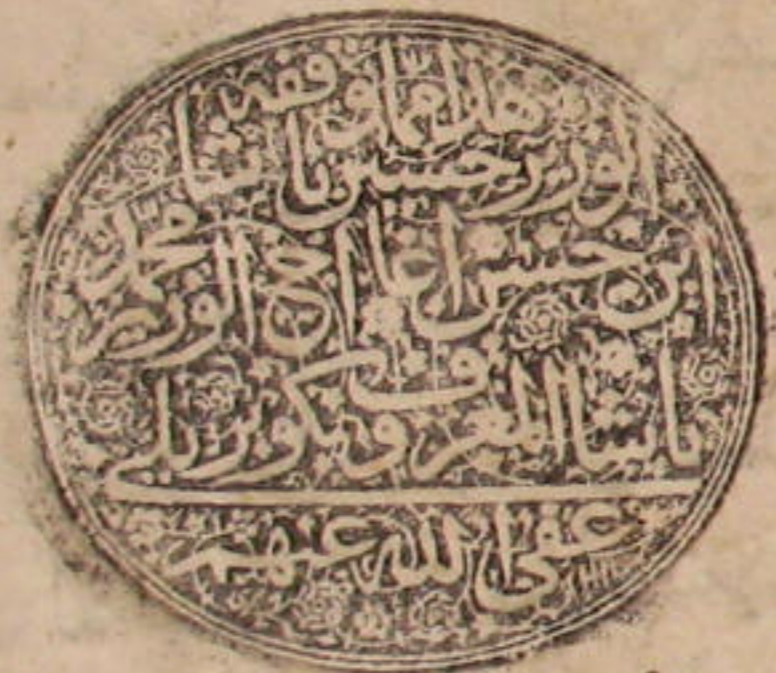 هذا مما وقفه
الوزير حسين پاشا
ابن حسن اغا اخ الوزير محمد
پاشا المعروف بكوپريلي
عفى الله عنهم